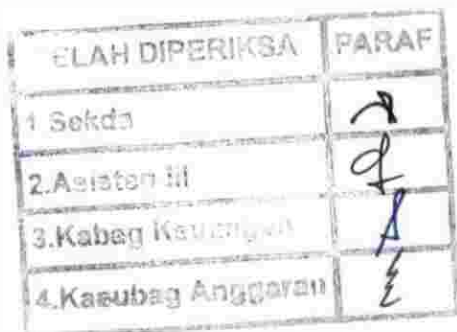 ELAH DIPERIKSA PARAF
1 Sekda
2.Asisten III
3.Kabag Keuangan
4.Kasubag Anggaran